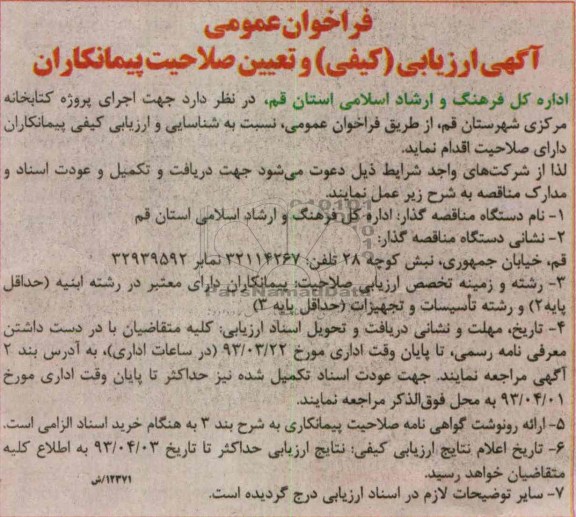 فراخوان عمومی
آگهی ارزیابی (کیفی) و تعیین صلاحیت پیمانکاران
اداره کل فرهنگ و ارشاد اسلامی استان قم، در نظر دارد جهت اجرای پروژه کتابخانه
مرکزی شهرستان قم، از طریق فراخوان عمومی، نسبت به شناسایی و ارزیابی کیفی پیمانکاران
دارای صلاحیت اقدام نماید.
لذا از شرکت‌های واجد شرایط ذیل دعوت می‌شود جهت دریافت و تکمیل و عودت اسناد و
مدارک مناقصه به شرح زیر عمل نمایند.
۱- نام دستگاه مناقصه گذار: اداره کل فرهنگ و ارشاد اسلامی استان قم
۲- نشانی دستگاه مناقصه گذار:
قم، خیابان جمهوری، نبش کوچه ۲۸ تلفن: ۳۲۱۱۴۲۶۷ نمابر ۳۲۹۳۹۵۹۲
۳- رشته و زمینه تخصص ارزیابی صلاحیت: پیمانکاران دارای معتبر در رشته ابنیه (حداقل
پایه۲) و رشته تأسیسات و تجهیزات (حداقل پایه ۳)
۴- تاریخ، مهلت و نشانی دریافت و تحویل اسناد ارزیابی: کلیه متقاضیان با در دست داشتن
معرفی نامه رسمی، تا پایان وقت اداری مورخ ۹۳/۰۳/۲۲ (در ساعات اداری)، به آدرس بند ۲
آگهی مراجعه نمایند. جهت عودت اسناد تکمیل شده نیز حداکثر تا پایان وقت اداری مورخ
۹۳/۰۴/۰۱ به محل فوق‌الذکر مراجعه نمایند.
۵- ارائه رونوشت گواهی نامه صلاحیت پیمانکاری به شرح بند ۳ به هنگام خرید اسناد الزامی است.
۶- تاریخ اعلام نتایج ارزیابی کیفی: نتایج ارزیابی حداکثر تا تاریخ ۹۳/۰۴/۰۳ به اطلاع کلیه
متقاضیان خواهد رسید.
۱۲۳۷۱/ش
۷- سایر توضیحات لازم در اسناد ارزیابی درج گردیده است.